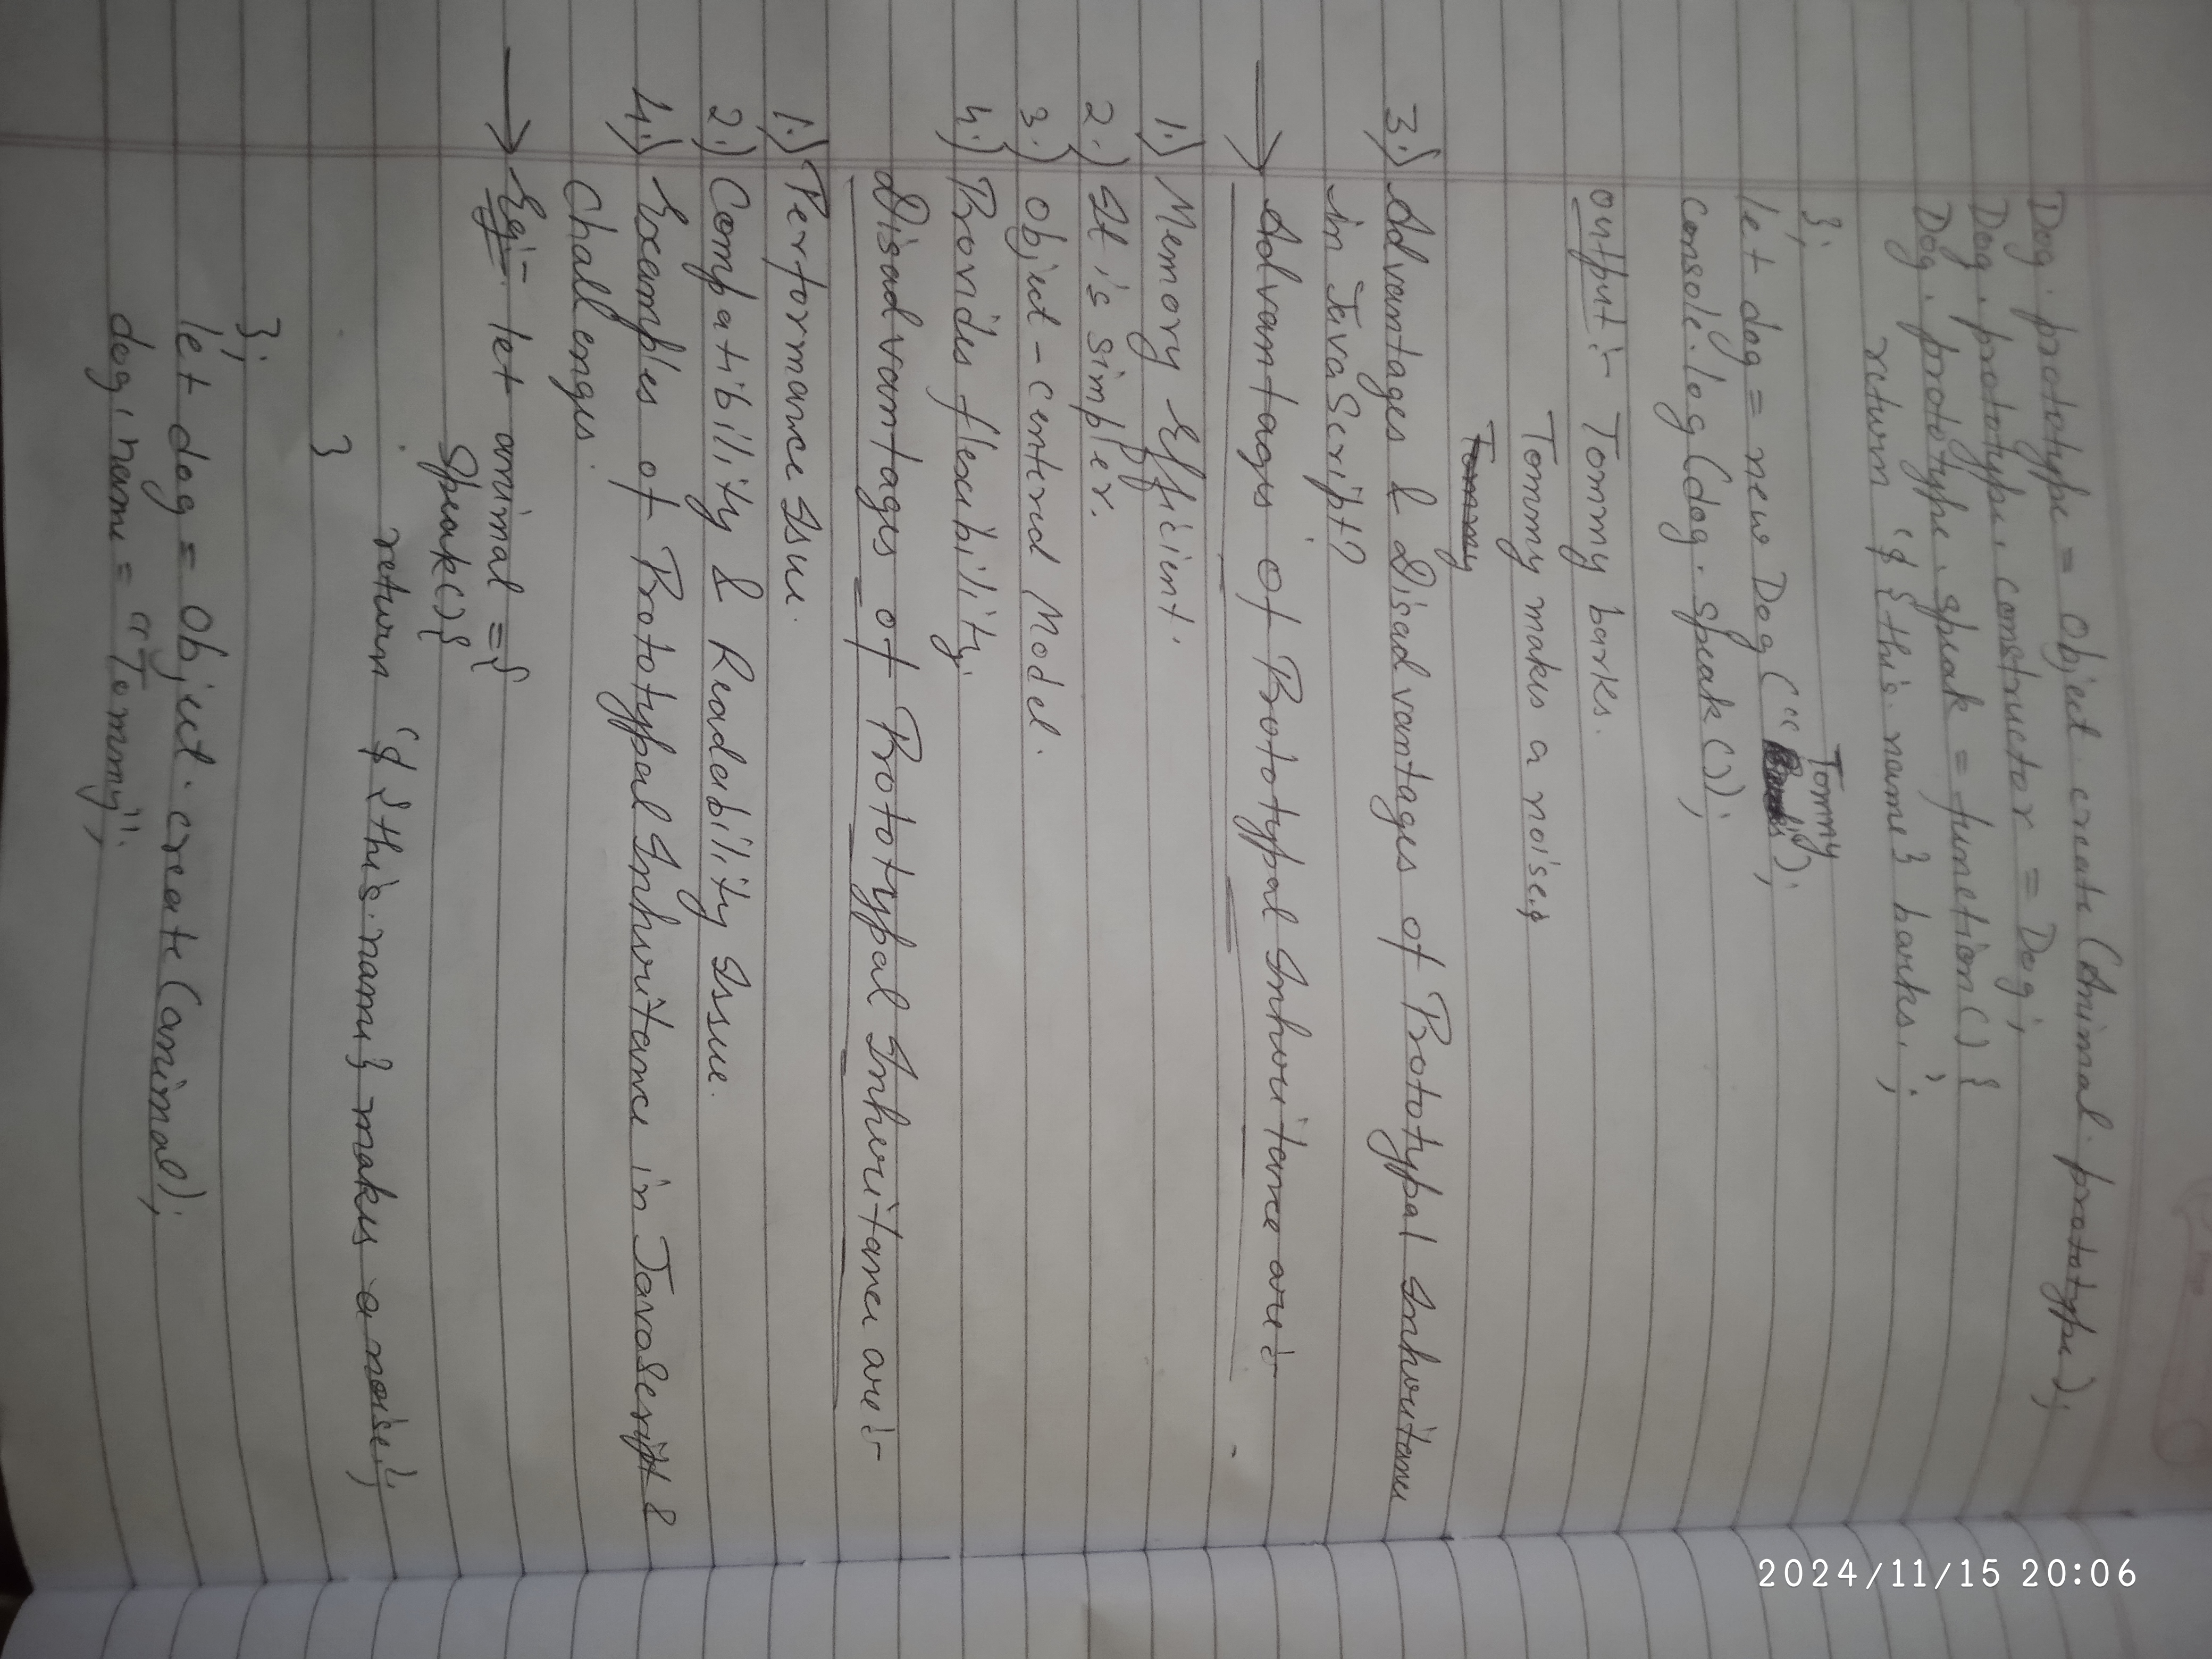 Dog. prototype = Object. create (Animal. prototype);
Dog. prototype. constructor = Dog;
Dog. prototype. speak = function() {
return '$ {this. name} barks.';
};
Tommy
let dog = new Dog ("");
console. log (dog. speak ());
output :- Tommy barks.
Tommy makes a noise.
Tommy
3.) Advantages & Disadvantages of Prototypal Inheritance
in JavaScript?
→ Advantages of Prototypal Inheritance are :-
1.) Memory Efficient.
2.) It is simpler.
3.) Object - Centered Model.
4.) Provides flexibility.
Disadvantages of Prototypal Inheritance are :-
1.) Performance Issue.
2.) Compatibility & Readability Issue.
4.) Examples of Prototypal Inheritance in JavaScript &
Challenges.
→ Eg:- let animal = {
Speak() {
return '$ {this. name} makes a noise.';
}
};
let dog = Object. create (animal);
dog. name = "Tommy";
2024/11/15 20:06